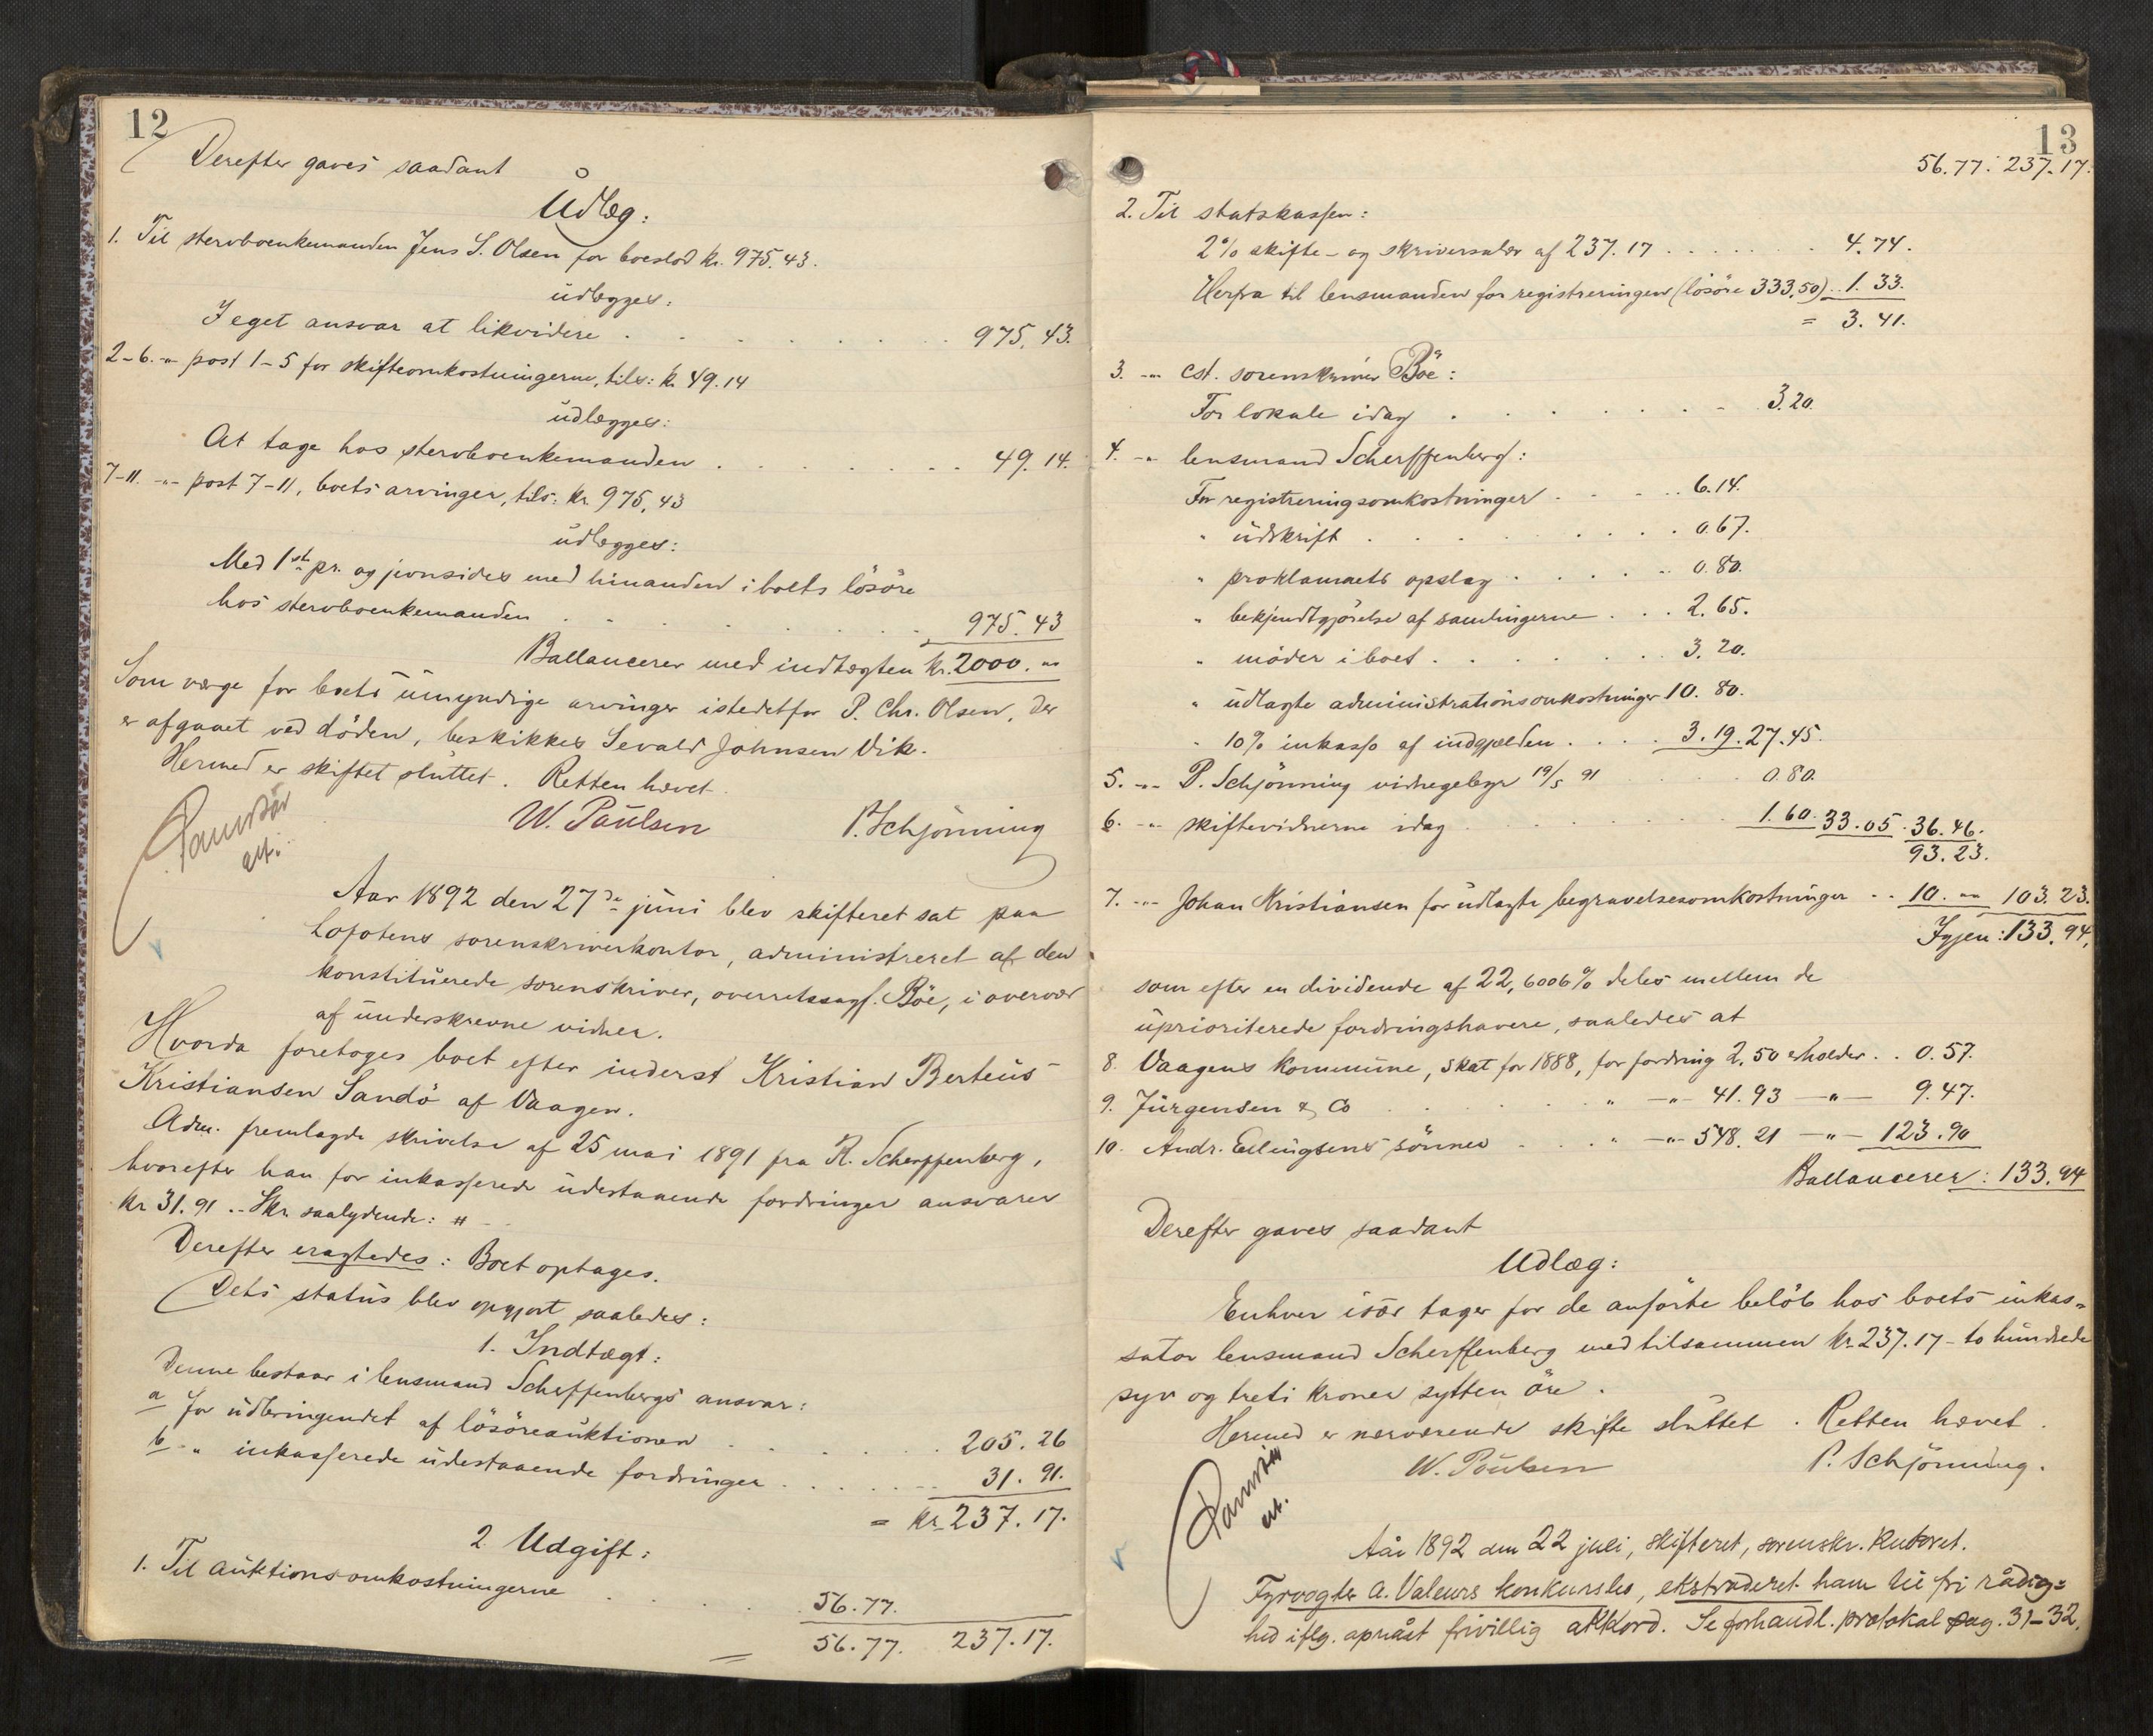 12
Derefter gaves saadant
Udlæg:
1. Til stervboenkemanden Jens S. Olsen for boeslod kr. 975.43.
udlægges:
I eget ansvar at likvidere . . . . . . . 975.43.
2-6. -"- post 1-5 for skifteomkostningerne, tils: kr. 49.14
udlægges:
At tage hos stervboenkemanden . . . . . . . 49.14.
7-11. -"- post 7-11, boets arvinger, tils: kr. 975,43
udlægges:
Med 1st pr. og jevnsides med hinanden i boets lösöre
hos stervboenkemanden . . . . . . . 975.43
Ballancerer med indtægten kr. 2000. "
Som værge for boets umyndige arvinger istedetfor P. Chr. Olsen, der
er afgaaet ved döden, beskikkes Sevald Johnsen Vik.
Hermed er skiftet sluttet. Retten hævet.
W. Paulsen P. Schjönning
Aar 1892 den 27de juni blev skifteret sat paa
Lofotens sorenskriverkontor, administreret af den
konstituerede sorenskriver, overretssagf. Böe, i overvær
af underskrevne vidner.
Hvorda foretoges boet efter inderst Kristian Berteus
Kristiansen Sandö af Vaagen.
Adm. fremlagde skrivelse af 25 mai 1891 fra R. Scherffenberg,
hvorefter han for inkasserede udestaaende fordringer ansvarer
kr 31.91 .. Skr. saalydende: #
Derefter eragtedes: Boet optages.
Dets status blev opgjort saaledes:
1. Indtægt:
Denne bestaar i lensmand Scherffenbergs ansvar:
a for udbringendet af lösöreauktionen . . . . . . 205.26
b " inkasserede udestaaende fordringer . . . . . . 31.91.
= kr 237.17.
2 Udgift:
1. Til auktionsomkostningerne . . . . 56.77.
56.77. 237.17.
13
56.77. 237.17.
2. Til statskassen:
2% skifte- og skriversalær af 237.17 . . . . . . 4.74.
Herfra til lensmanden for registreringen (lösöre 333,50) .. 1.33.
= 3.41.
3. -"- cst. sorenskriver Böe:
For lokale idag . . . . . . . 3.20.
4. -"- lensmand Scherffenberg:
For registreringsomkostninger . . . . 6.14.
" udskrift . . . . . . . 0.67.
" proklamaets opslag . . . . . 0.80.
" bekjendtgjörelse af samlingerne . . . 2.65.
" möder i boet . . . . . . . 3.20.
" udlagte administrationsomkostninger 10.80.
" 10% inkasso af indgjælden . . . . 3.19. 27.45.
5. -"- P. Schjönning vidnegebyr 19/5 91 . . . . 0.80.
6. -"- skiftevidnerne idag . . . . . . . 1.60. 33.05. 36.46.
93.23.
7. -"- Johan Kristiansen for udlagte begravelsesomkostninger . . 10. " 103.23.
Igjen: 133.94,
som efter en dividende af 22,6006% deles mellem de
uprioriterede fordringshavere, saaledes at
8. Vaagens kommune, skat for 1888, for fordring 2,50 erholder . . 0.57.
9. Jürgensen & Co . . . . . . " -"- 41.93 -"- 9.47.
10. Andr. Ellingsens sönner . . . . " -"- 548.21 -"- 123.90
Ballancerer: 133.94
Derefter gaves saadant
Udlæg:
Enhver især tager for de anförte belöb hos boets inkas=
sator lensmand Scherffenberg med tilsammen kr. 237.17 - to hundrede
syv og treti kroner sytten öre.
Hermed er nærværende skifte sluttet. Retten hævet.
W. Paulsen P. Schjönning.
Aår 1892 den 22 juli, skifteret, sorenskr. kontoret.
Fyrvogter A. Valeurs konkursbo, ekstraderet ham til fri rådig=
hed iflg. opnået frivillig akkord. Se forhandl. protokol pag. 31-32.